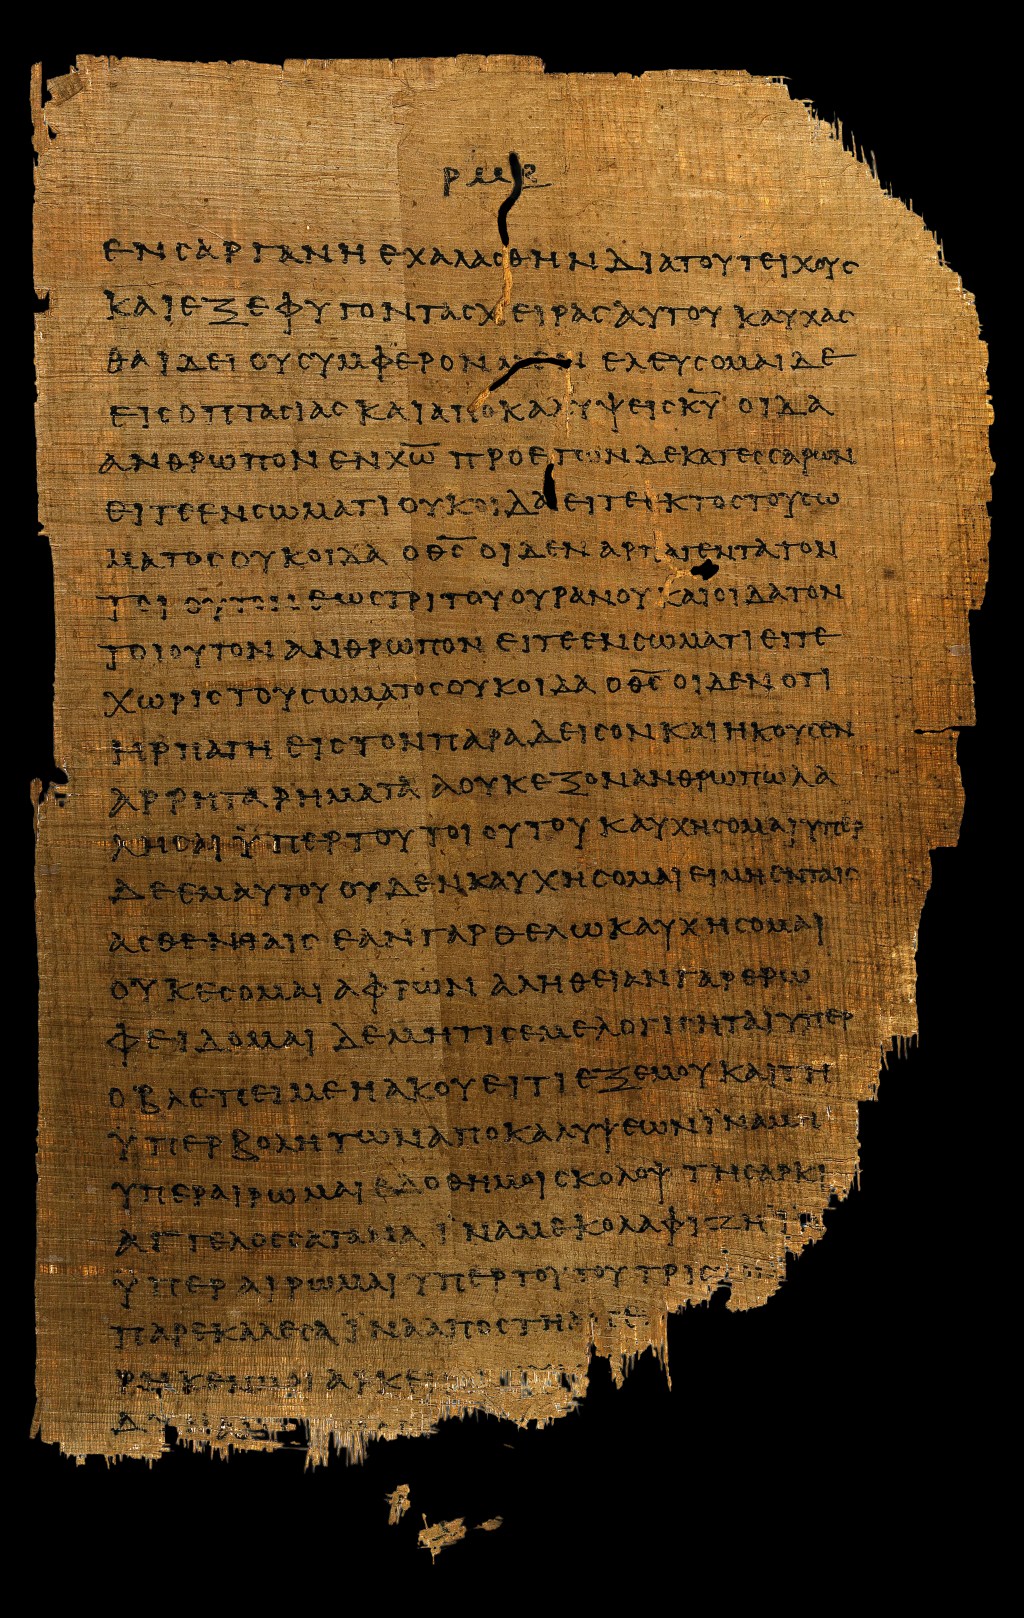 ρμε
ΕΝ ϹΑΡΓΑΝΗ ΕΧΑΛΑϹΘΗΝ ΔΙΑ ΤΟΥ ΤΕΙΧΟΥϹ
ΚΑΙ ΕΞΕΦΥΓΟΝ ΤΑϹ ΧΕΙΡΑϹ ΑΥΤΟΥ ΚΑΥΧΑϹ
ΘΑΙ ΔΕΙ ΟΥ ϹΥΜΦΕΡΟΝ ΜΕΝ ΕΛΕΥϹΟΜΑΙ ΔΕ
ΕΙϹ ΟΠΤΑϹΙΑϹ ΚΑΙ ΑΠΟΚΑΛΥΨΕΙϹ Κ̅Υ̅ ΟΙΔΑ
ΑΝΘΡΩΠΟΝ ΕΝ Χ̅Ω̅ ΠΡΟ ΕΤΩΝ ΔΕΚΑΤΕϹϹΑΡΩΝ
ΕΙΤΕ ΕΝ ϹΩΜΑΤΙ ΟΥΚ ΟΙΔΑ ΕΙΤΕ ΕΚΤΟϹ ΤΟΥ ϹΩ
ΜΑΤΟϹ ΟΥΚ ΟΙΔΑ Ο Θ̅Ϲ̅ ΟΙΔΕΝ ΑΡΠΑΓΕΝΤΑ ΤΟΝ
ΤΟΙΟΥΤΟΝ ΕΩϹ ΤΡΙΤΟΥ ΟΥΡΑΝΟΥ ΚΑΙ ΟΙΔΑ ΤΟΝ
ΤΟΙΟΥΤΟΝ ΑΝΘΡΩΠΟΝ ΕΙΤΕ ΕΝ ϹΩΜΑΤΙ ΕΙΤΕ
ΧΩΡΙϹ ΤΟΥ ϹΩΜΑΤΟϹ ΟΥΚ ΟΙΔΑ Ο Θ̅Ϲ̅ ΟΙΔΕΝ ΟΤΙ
ΗΡΠΑΓΗ ΕΙϹ ΤΟΝ ΠΑΡΑΔΕΙϹΟΝ ΚΑΙ ΗΚΟΥϹΕΝ
ΑΡΡΗΤΑ ΡΗΜΑΤΑ Α ΟΥΚ ΕΞΟΝ ΑΝΘΡΩΠΩ ΛΑ
ΛΗϹΑΙ ΫΠΕΡ ΤΟΥ ΤΟΙΟΥΤΟΥ ΚΑΥΧΗϹΟΜΑΙ ΥΠΕΡ
ΔΕ ΕΜΑΥΤΟΥ ΟΥΔΕΝ ΚΑΥΧΗϹΟΜΑΙ ΕΙ ΜΗ ΕΝ ΤΑΙϹ
ΑϹΘΕΝΗΑΙϹ ΕΑΝ ΓΑΡ ΘΕΛΩ ΚΑΥΧΗϹΟΜΑΙ
ΟΥΚ ΕϹΟΜΑΙ ΑΦΡΩΝ ΑΛΗΘΕΙΑΝ ΓΑΡ ΕΡΩ
ΦΕΙΔΟΜΑΙ ΔΕ ΜΗ ΤΙϹ ΕΜΕ ΛΟΓΙϹΗΤΑΙ ΥΠΕΡ
Ο ΒΛΕΠΕΙ ΜΕ Η ΑΚΟΥΕΙ ΤΙ ΕΞ ΕΜΟΥ ΚΑΙ ΤΗ
ΫΠΕΡΒΟΛΗ ΤΩΝ ΑΠΟΚΑΛΥΨΕΩΝ ΪΝΑ ΜΗ
ΥΠΕΡΑΙΡΩΜΑΙ ΕΔΟΘΗ ΜΟΙ ϹΚΟΛΟΨ ΤΗ ϹΑΡΚΙ
ΑΓΓΕΛΟϹ ϹΑΤΑΝΑ ΪΝΑ ΜΕ ΚΟΛΑΦΙΖΗ ΪΝ
ΫΠΕΡΑΙΡΩΜΑΙ ΥΠΕΡ ΤΟΥΤΟΥ ΤΡΙϹ
ΠΑΡΕΚΑΛΕϹΑ ΪΝΑ ΑΠΟϹΤΗ
ΡΗΚΕΝ ΜΟΙ ΑΡΚΕΙ